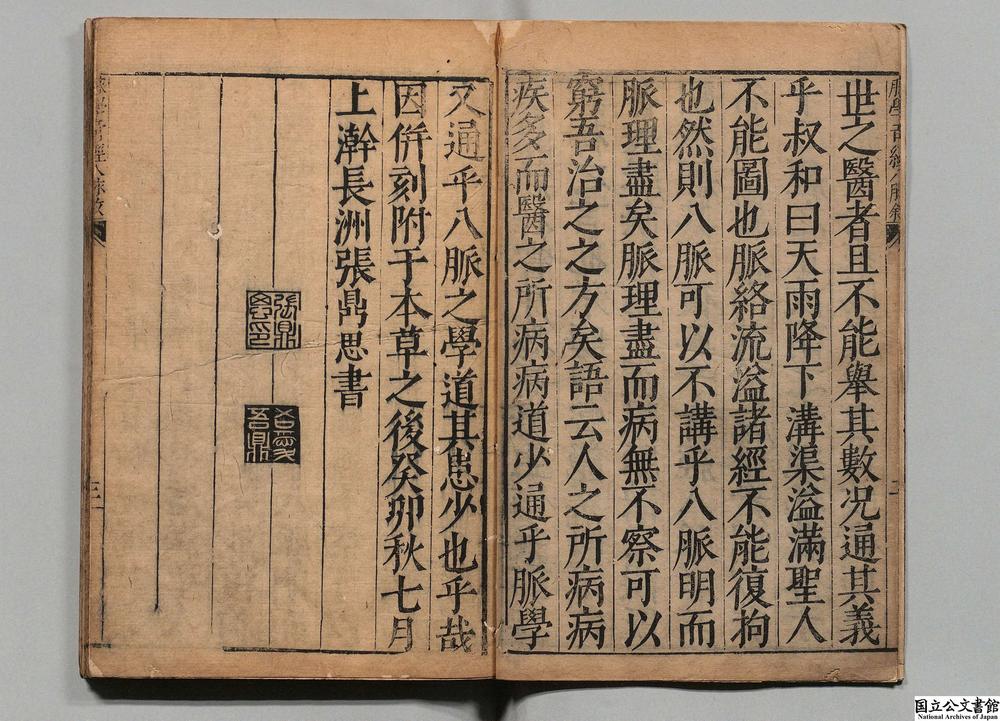 世之醫者且不能舉其數况通其義
乎叔和曰天雨降下溝渠溢滿聖人
不能圖也脈絡流溢諸經不能復拘
也然則八脈可以不講乎八脈明而
脈理盡矣脈理盡而病無不察可以
窮吾治之之方矣語云人之所病病
疾多而醫之所病病道少通乎脈學
又通乎八脈之學道其患少也乎哉
因併刻附于本草之後癸卯秋七月
上澣長洲張鼎思書
張鼎思印
国立公文書館
National Archives of Japan